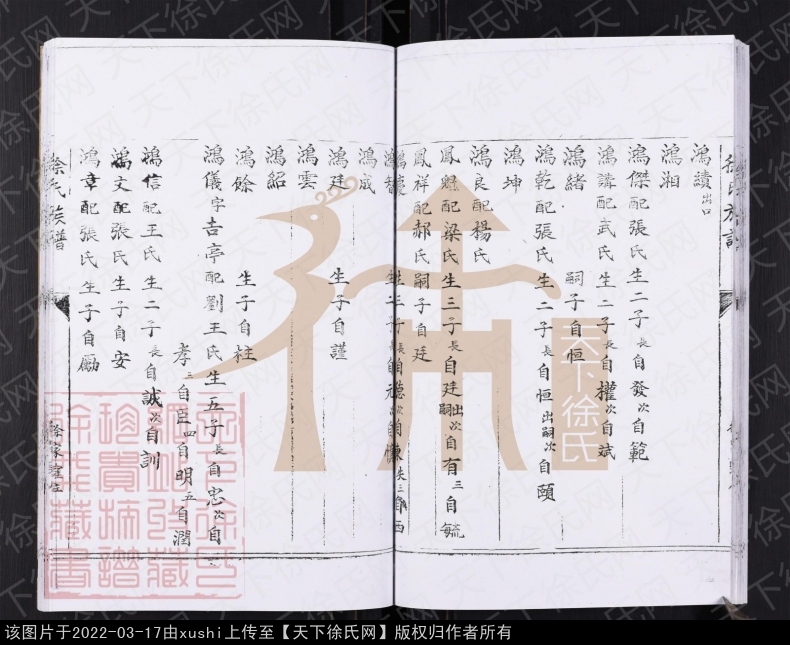 徐氏族譜
鴻績出口
鴻湘
鴻傑配張氏生二子長自發次自範
鴻講配武氏生二子長自權次自斌
鴻緒 嗣子自恒
鴻乾配張氏生二子長自恒出嗣次自頤
鴻坤
鴻良配楊氏
鳳魁配梁氏生三子長自廷出嗣次自有三自毓
鳳祥配郝氏嗣子自廷
鴻成
鴻廷 生子自謹
鴻雲
鴻紹
鴻餘 生子自柱
鴻儀字吉亭配劉王氏生五子長自忠次自
孝三自臣四自明五自潤
鴻信配王氏生二子長自誠次自訓
鴻文配張氏生子自安
鴻章配張氏生子自勵
徐氏族譜
天下徐氏
天下徐氏网
该图片于2022-03-17由xushi上传至【天下徐氏网】版权归作者所有